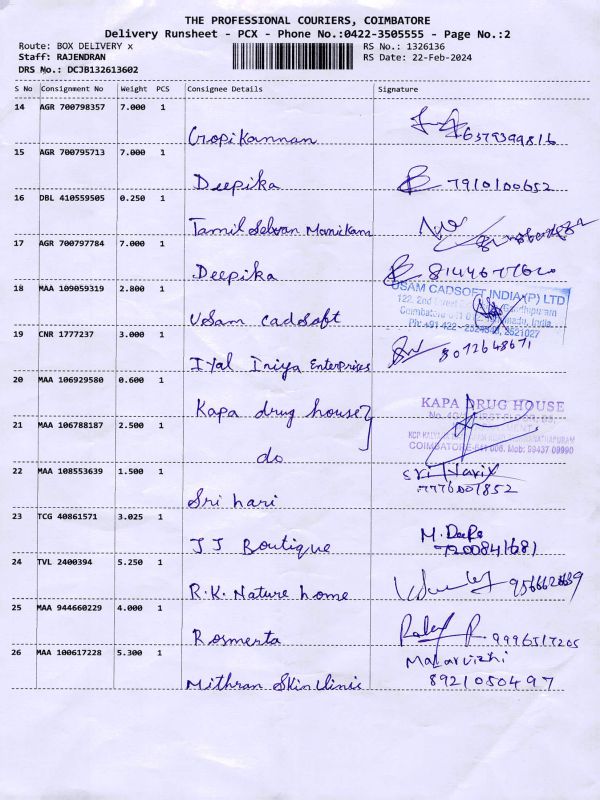 THE PROFESSIONAL COURIERS, COIMBATORE
Delivery Runsheet - PCX - Phone No.:0422-3505555 - Page No.:2
Route: BOX DELIVERY x
RS No.: 1326136
Staff: RAJENDRAN
RS Date: 22-Feb-2024
DRS No.: DCJB132613602
S No Consignment No Weight PCS Consignee Details Signature
14 AGR 700798357 7.000 1
Gropikannan 6379399816
15 AGR 700795713 7.000 1
Deepika 7910100652
16 DBL 410559505 0.250 1
Tamil Selvan Manikam
17 AGR 700797784 7.000 1
Deepika 8144677620
18 MAA 109059319 2.800 1
USAM CADSOFT INDIA (P) LTD
122, 2nd
Coimbatore India.
Ph:+91 422 - 2521027
Usam Cadsoft
19 CNR 1777237 3.000 1
Iyal Iniya Enterprises 8072648671
20 MAA 106929580 0.600 1
Kapa drug house
KAPA DRUG HOUSE
21 MAA 106788187 2.500 1
COIMBATORE-641 006. Mob: 99437 09990
do
22 MAA 108553639 1.500 1
Sri Harix
7776007852
Sri hari
23 TCG 40861571 3.025 1
M. Deepa
7200841681
JJ Boutique
24 TVL 2400394 5.250 1
R.K. Nature home
25 MAA 944660229 4.000 1
Rosmerta 9996517205
26 MAA 100617228 5.300 1
Malarvizhi
8921050497
Mithran Skin Clinic